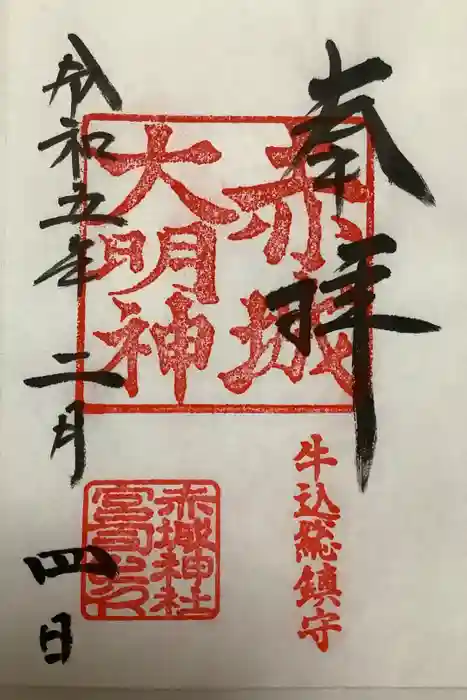 奉拝
赤城
大明神
牛込総鎮守
赤城神社
宮司之印
令和五年 二月 四日